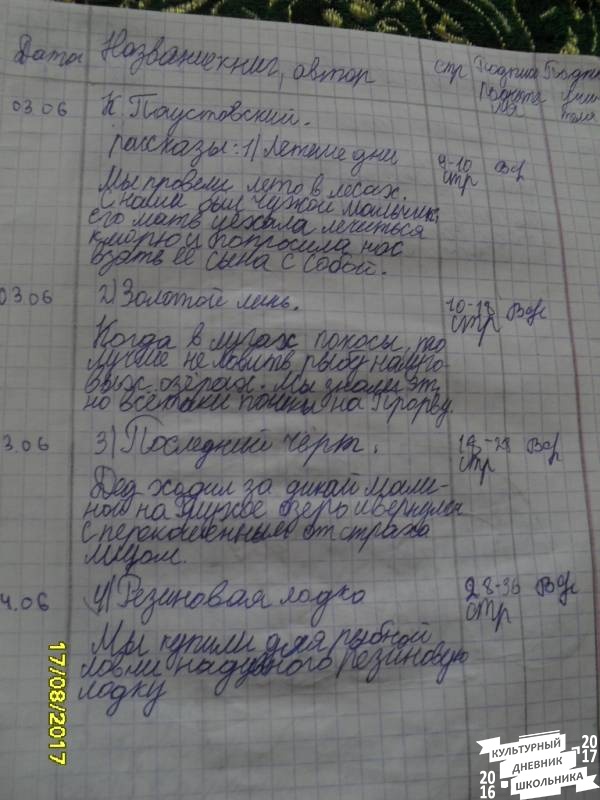 Дата Название книг, автор стр Подпись Подпи
родите учи
ля теля
03.06 К Паустовский.
рассказы: 1) Летние дни 4-10
стр
Мы провели лето в лесах.
С нами был чужой мальчик,
его мать уехала лечиться
к морю и попросила нас
взять её сына с собой.
03.06 2) Золотой линь. 10-18
стр
Когда в лугах покосы, то
лучше не ловить рыбу на луго-
вых озёрах. Мы знали эт,
но всётаки пошли на Прорву.
3.06 3) Последний чёрт. 18-28
стр
Дед ходил за дикой мали-
ной на Глухое озеро и вернулся
с перекошенным от страха
лицом.
4.06 4) Резиновая лодка 28-36
стр
Мы купили для рыбной
ловли надувного резиновую
лодку
17/08/2017
КУЛЬТУРНЫЙ
ДНЕВНИК
ШКОЛЬНИКА
2016
2017